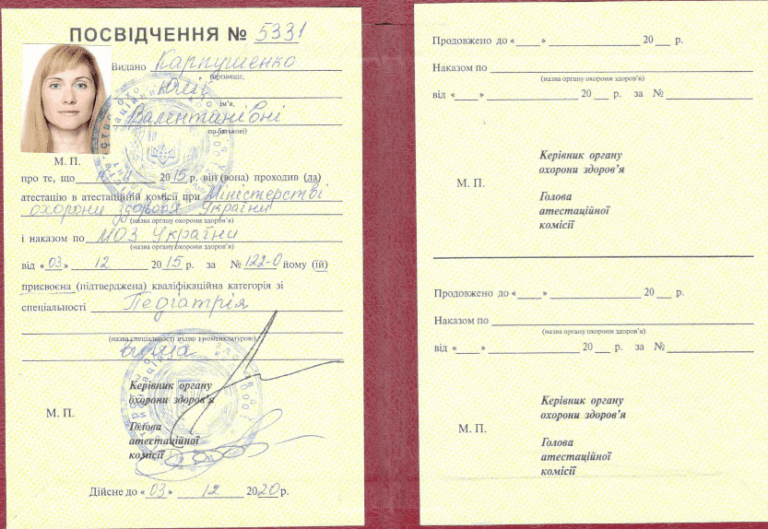 ПОСВІДЧЕННЯ № 5331
Видано Карпушенко
(прізвище,
Юлії
ім'я,
Валентинівні
по-батькові)
М. П.
про те, що 2015 р. він (вона) проходив (ла)
атестацію в атестаційній комісії при Міністерстві
охорони здоров'я України
(назва органу охорони здоров'я)
і наказом по МОЗ України
(назва органу охорони здоров'я)
від «03» 12 2015 р. за № 122-О йому (їй)
присвоєна (підтверджена) кваліфікаційна категорія зі
спеціальності Педіатрія
(назва спеціальності згідно з номенклатурою)
вища
Керівник органу
охорони здоров'я
М. П.
Голова
атестаційної
комісії
Дійсне до «03» 12 2020 р.
Продовжено до « » 20 р.
Наказом по
(назва органу охорони здоров'я)
від « » 20 р. за №
Керівник органу
охорони здоров'я
М. П.
Голова
атестаційної
комісії
Продовжено до « » 20 р.
Наказом по
(назва органу охорони здоров'я)
від « » 20 р. за №
Керівник органу
охорони здоров'я
М. П.
Голова
атестаційної
комісії